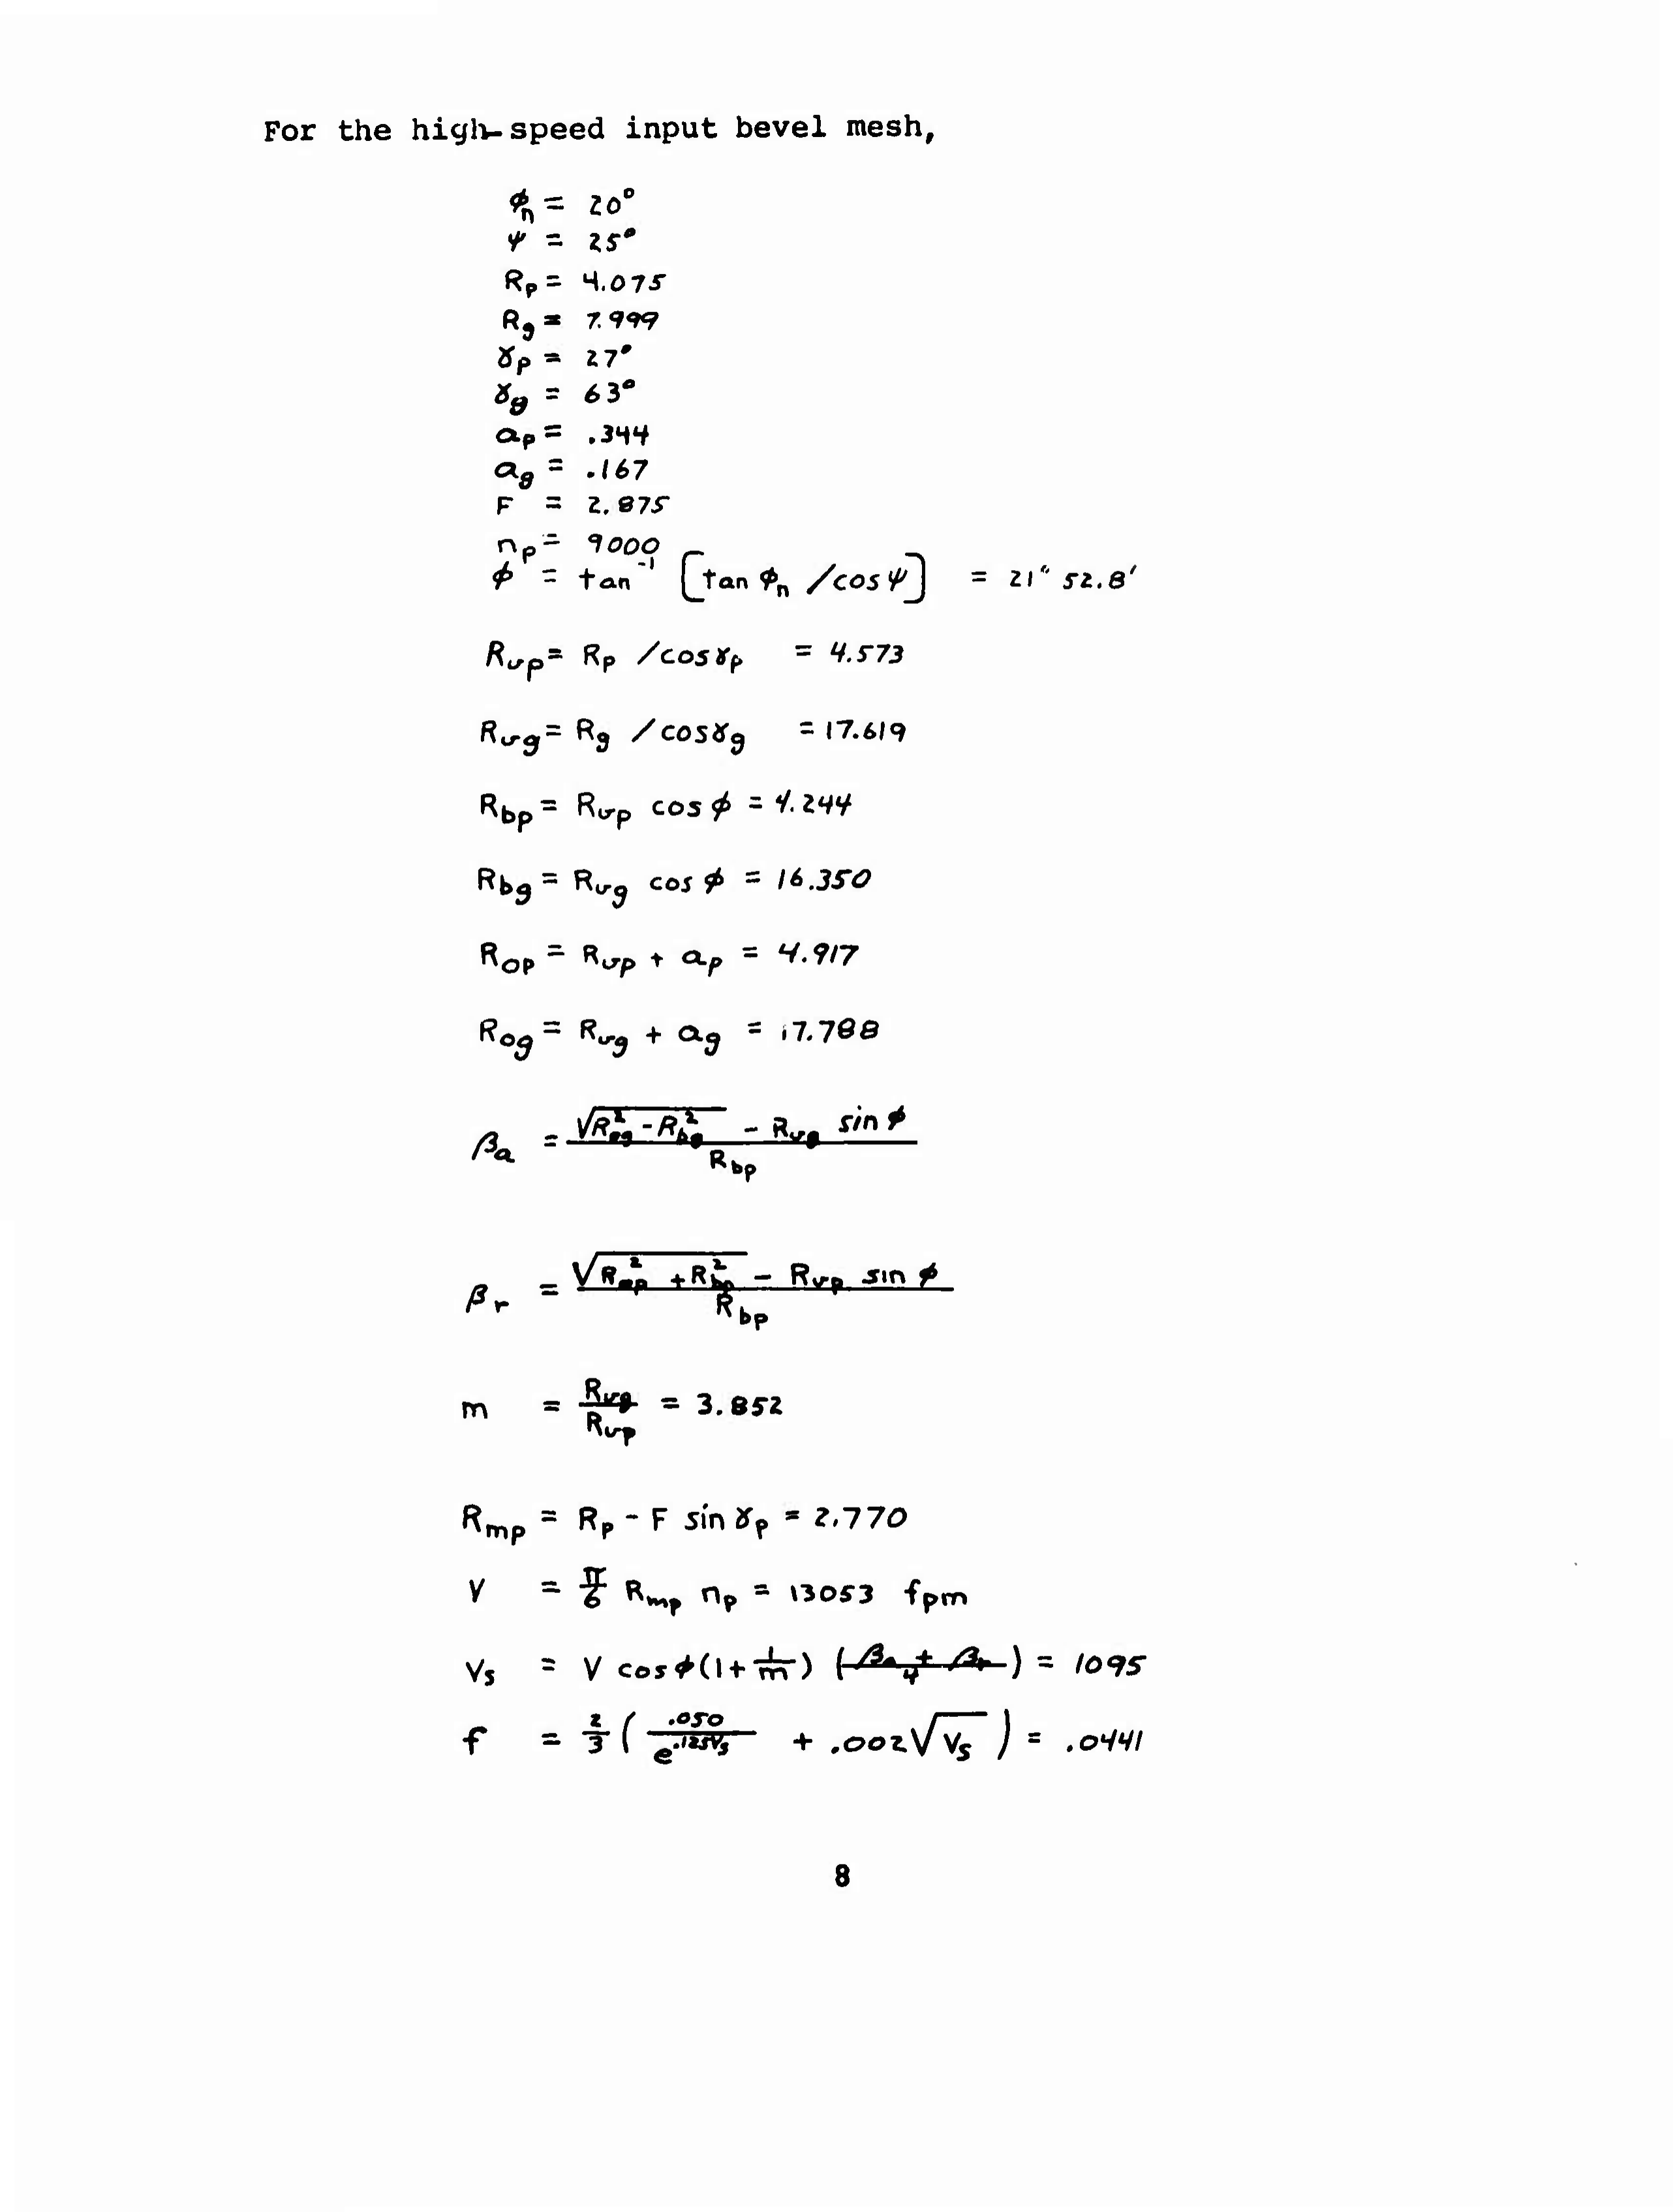 For the high-speed input bevel mesh,
ϕn = 20°
ψ = 25°
Rp = 4.075
Rg = 7.999
γp = 27°
γg = 63°
ap = .344
ag = .167
F = 2.875
np = 9000
ϕ = tan⁻¹ [tan ϕn /cos ψ] = 21° 52.8'
Rvp = Rp /cos γp = 4.573
Rvg = Rg /cos γg = 17.619
Rbp = Rvp cos ϕ = 4.244
Rbg = Rvg cos ϕ = 16.350
Rop = Rvp + ap = 4.917
Rog = Rvg + ag = 17.788
βa = √(Rog² - Rbg²) - Rvg sin ϕ / Rbp
βr = √(Rop² + Rbp²) - Rvp sin ϕ / Rbp
m = Rvg / Rvp = 3.852
Rmp = Rp - F sin γp = 2.770
V = π/6 Rmp np = 13053 fpm
Vs = V cos ϕ (1 + 1/m) (βa + βr / 4) = 1095
f = 2/3 ( .050 / e^.125Vs + .002 √Vs ) = .0441
8